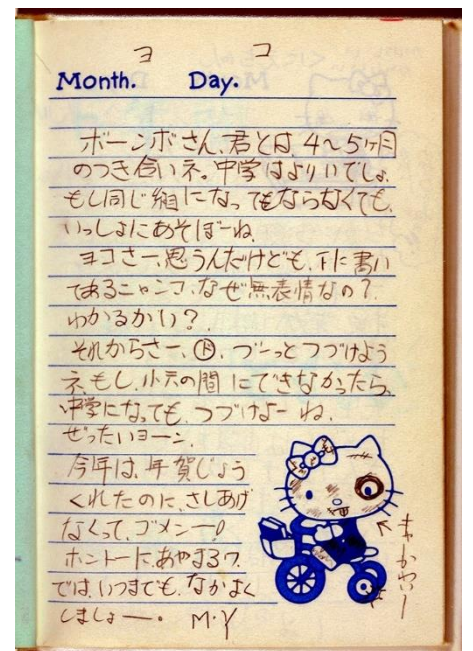 ヨ コ
Month. Day.
ボーンボさん、君とは、4〜5ヶ月
のつき合いネ。中学はよりいでしょ、
もし同じ組になってもならなくても、
いっしょにあそぼーね。
ヨコさー、思うんだけども、下に書い
てあるニャンコ、なぜ無表情なの?
わかるかい?
それからさー、㊋、づーっとつづけよう
ネ、もし、小六の間にできなかったら、
中学になっても、つづけよーね。
ぜったいヨーン。
今年は、年賀じょう
くれたのに、さしあげ
なくって、ゴメンー!
ホントーに、あやまるワ。
では、いつまでも、なかよく
しましょー。 M.Y